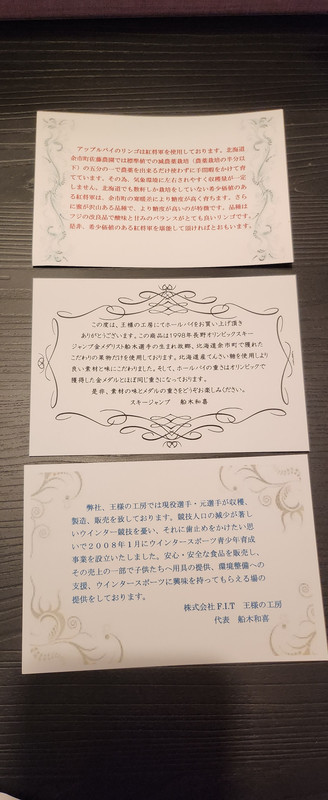 アップルパイのリンゴは紅将軍を使用しております。北海道
余市町佐藤農園では標準値での減農薬栽培（農薬栽培の半分以
下）の五分の一で農薬を出まるだけ使わずに手間暇をかけて育
てています。その為、気象環境に左右されやすく収穫量が一定
しません。北海道でも数軒しか栽培をしていない希少価値のあ
る紅将軍は、余市町の寒暖差により糖度が高く育ちます。さら
に蜜が沢山ある品種で、より糖度が高いのが特徴です。品種は
フジの改良品で酸味と甘みのバランスがとても良いリンゴです。
是非、希少価値のある紅将軍を堪能して頂ければとおもいます。
この度は、王様の工房にてホールパイをお買い上げ頂き
ありがとうございます。この商品は1998年長野オリンピックスキー
ジャンプ金メダリスト船木選手の生まれ故郷、北海道余市町で穫れた
こだわりの果物だけを使用しております。北海道産てんさい糖を使用しより
良い素材と味にこだわりました。そして、ホールパイの重さはオリンピックで
獲得した金メダルとほぼ同じ重さになっております。
是非、素材の味とメダルの重さをどうぞお楽しみください。
スキージャンプ　船木和喜
弊社、王様の工房では現役選手・元選手が収穫、
製造、販売を致しております。競技人口の減少が著し
いウインター競技を憂い、それに歯止めをかけたい思
いで２００８年１月にウインタースポーツ青少年育成
事業を設立いたしました。安心・安全な食品を販売し、
その売上の一部で子供たちへ用具の提供、環境整備への
支援、ウインタースポーツに興味を持ってもらえる場の
提供をしております。
株式会社 F.I.T　王様の工房
代表　船木和喜